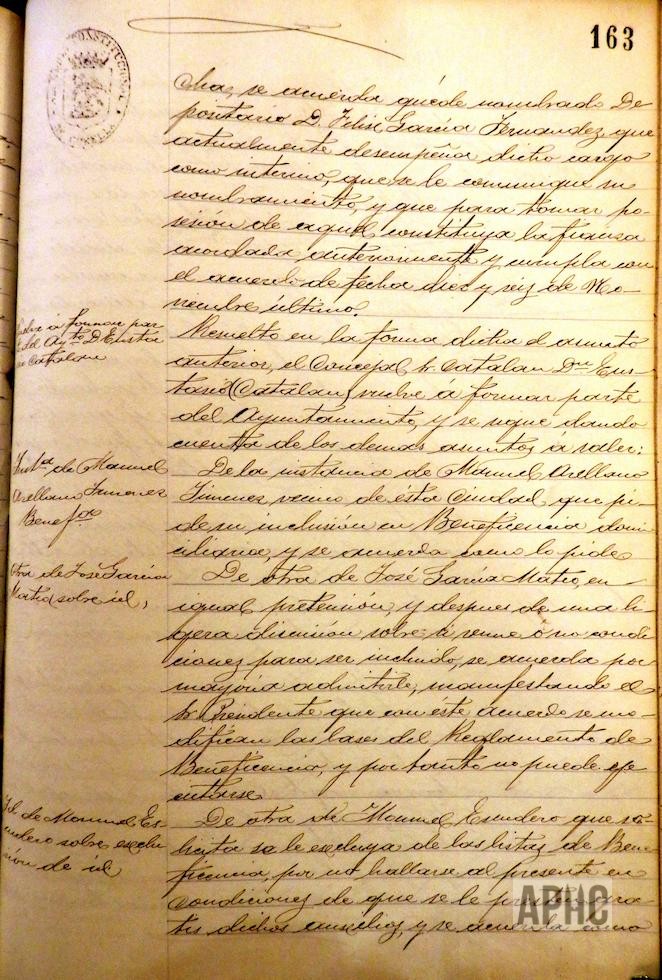 163
cha, se acuerda quede nombrado De
positario D. Felix Garcia Fernandez que
actualmente desempeña dicho cargo
como interino, que se le comunique su
nombramiento, y que para tomar po-
sesión de aquel constituya la fianza
acordada anteriormente y cumpla con
el acuerdo de fecha diez y seis de No-
viembre último.
Vuelve á formar par
te del Aytº D. Eusta
sio Catalan
Resuelto en la forma dicha el asunto
anterior, el Concejal Sr. Catalan Dn Eus-
tasio (Catalan) vuelve á formar parte
del Ayuntamiento, y se sigue dando
cuenta de los demas asuntos á saber:
Instª de Manuel
Arellano Jimenez
Benefª
De la instancia de Manuel Arellano
Jimenez vecino de ésta Ciudad que pi-
de su inclusión en Beneficencia domi
ciliaria, y se acuerda como lo pide
Otra de José Garcia
Mateo sobre id,
De otra de José Garcia Mateo, en
igual pretensión, y despues de una li-
gera discusión sobre si reune ó no condi
ciones para ser incluido, se acuerda por
mayoria admitirle, manifestando el
Sr. Presidente que con este acuerdo se mo-
difican las bases del Reglamento de
Beneficencia, y por tanto no puede eje
cutarse.
Id. de Manuel Es
cudero sobre exclu
sión de id
De otra de Manuel Escudero que so-
licita se le excluya de las listas de Bene
ficencia, por no hallarse al presente en
condiciones de que se le presten gra-
tis dichos auxilios, y se acuerda como
APHC